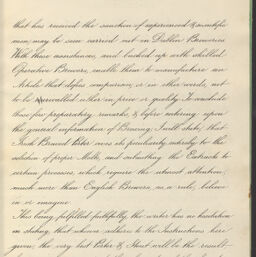 that has received the sanction of experienced & scientific
men, may be seen carried out in Dublin Breweries
With these assistances, and backed up with skilled
Operative Brewers, enable them to manufacture an
Article that defies comparison, or in other words, not
to be rivalled either in price or quality. To conclude
these few preparatory remarks, & before entering upon
the general information of Brewing, I will state, that
Irish Brewed Porter owes its peculiarity entirely to the
selection of proper Malts, and submitting the Extracts to
certain processes, which require the utmost attention,
much more than English Brewers, as a rule, believe
in or imagine
This being fulfilled faithfully, the writer has no hesitation
in stating, that whoever adheres to the Instructions here
given, the very best Porter & Stout will be the result